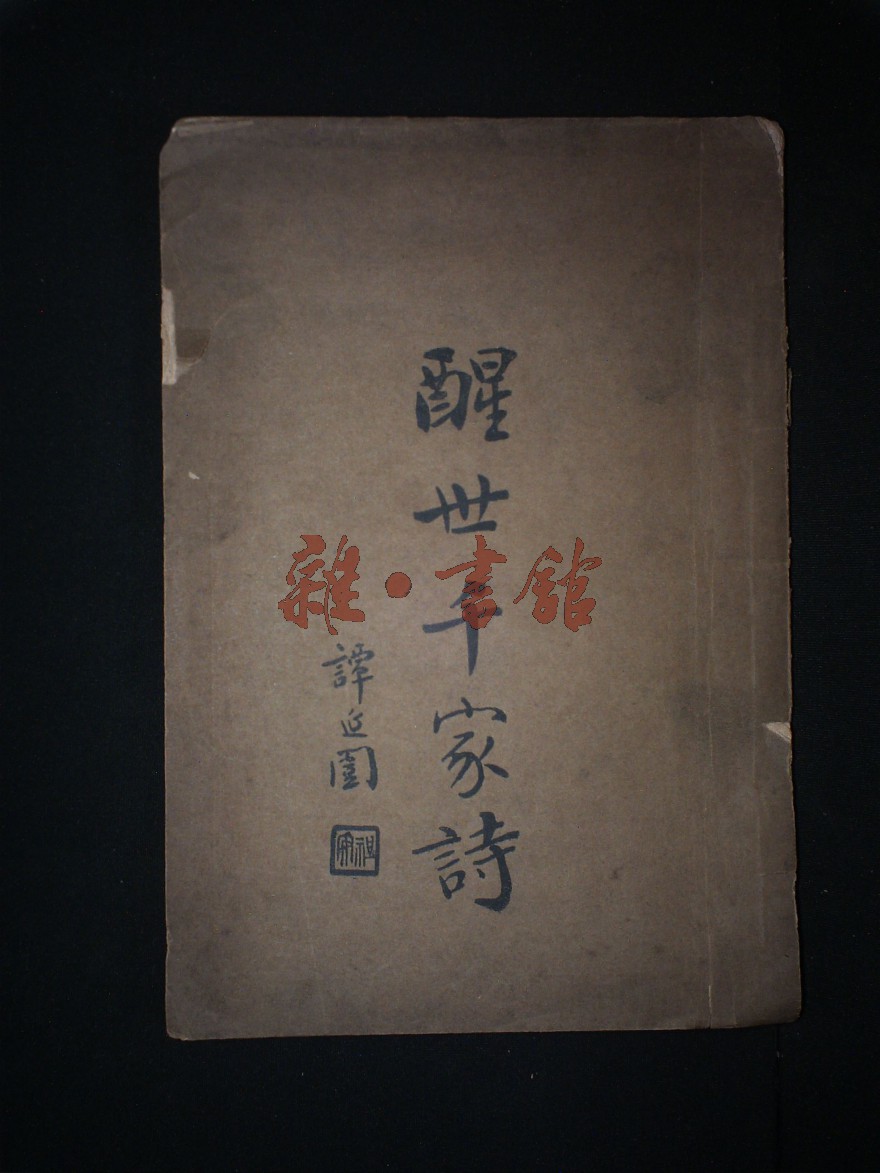 醒世千家詩
譚延闓
祖安
雜·書館